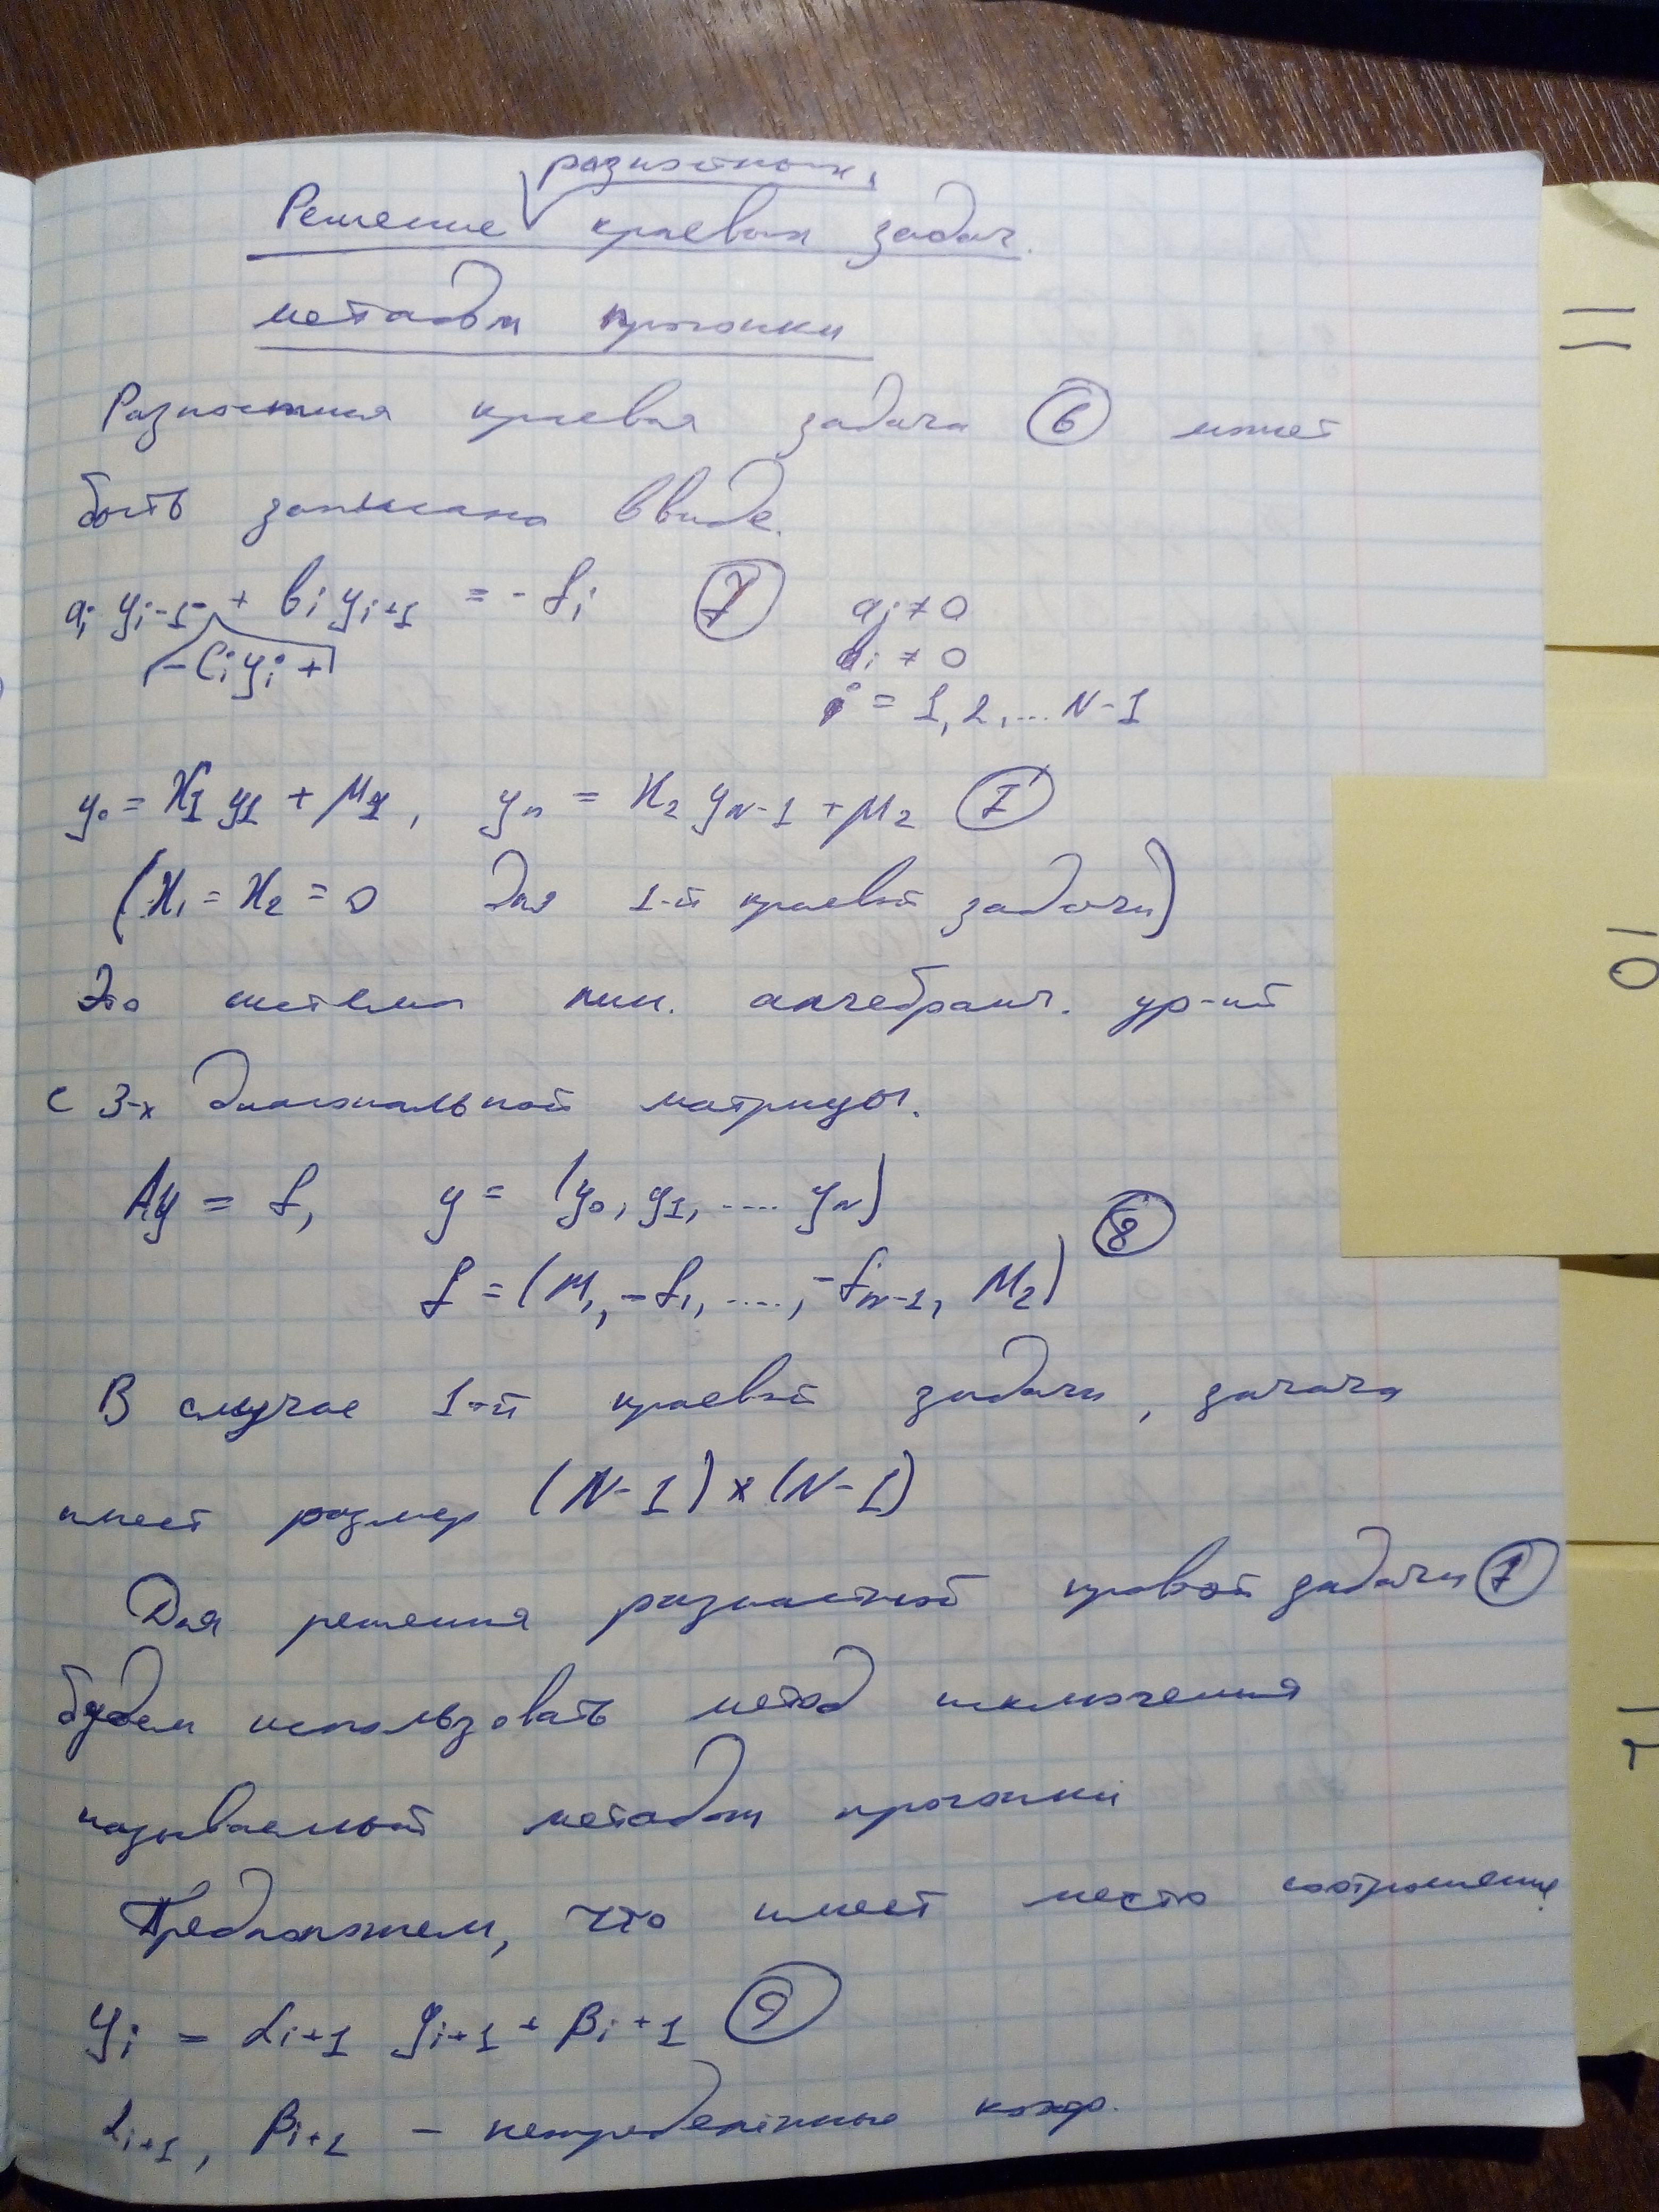 разностных
Решение краевых задач.
методом прогонки
Разностная краевая задача ⑥ может
быть записана в виде.
a_i y_{i-1} + b_i y_{i+1} = - f_i ⑦ a_i ≠ 0
- c_i y_i + b_i ≠ 0
i = 1, 2, ... N-1
y_0 = ϰ_1 y_1 + μ_1, y_n = ϰ_2 y_{N-1} + μ_2 ⑦'
(ϰ_1 = ϰ_2 = 0 для 1-й краевой задачи)
Это система лин. алгебраич. ур-ий
с 3-х диагональной матрицы.
Ay = f, y = (y_0, y_1, .... y_N)
⑧
f = (μ_1, -f_1, ...., -f_{N-1}, μ_2)
В случае 1-й краевой задачи, задача
имеет размер (N-1) × (N-1)
Для решения разностной краевой задачи ⑦
будем использовать метод исключения
называемый методом прогонки
Предположим, что имеет место соотношение
y_i = α_{i+1} y_{i+1} + β_{i+1} ⑨
α_{i+1}, β_{i+1} – неопределённые коэф.
11
10